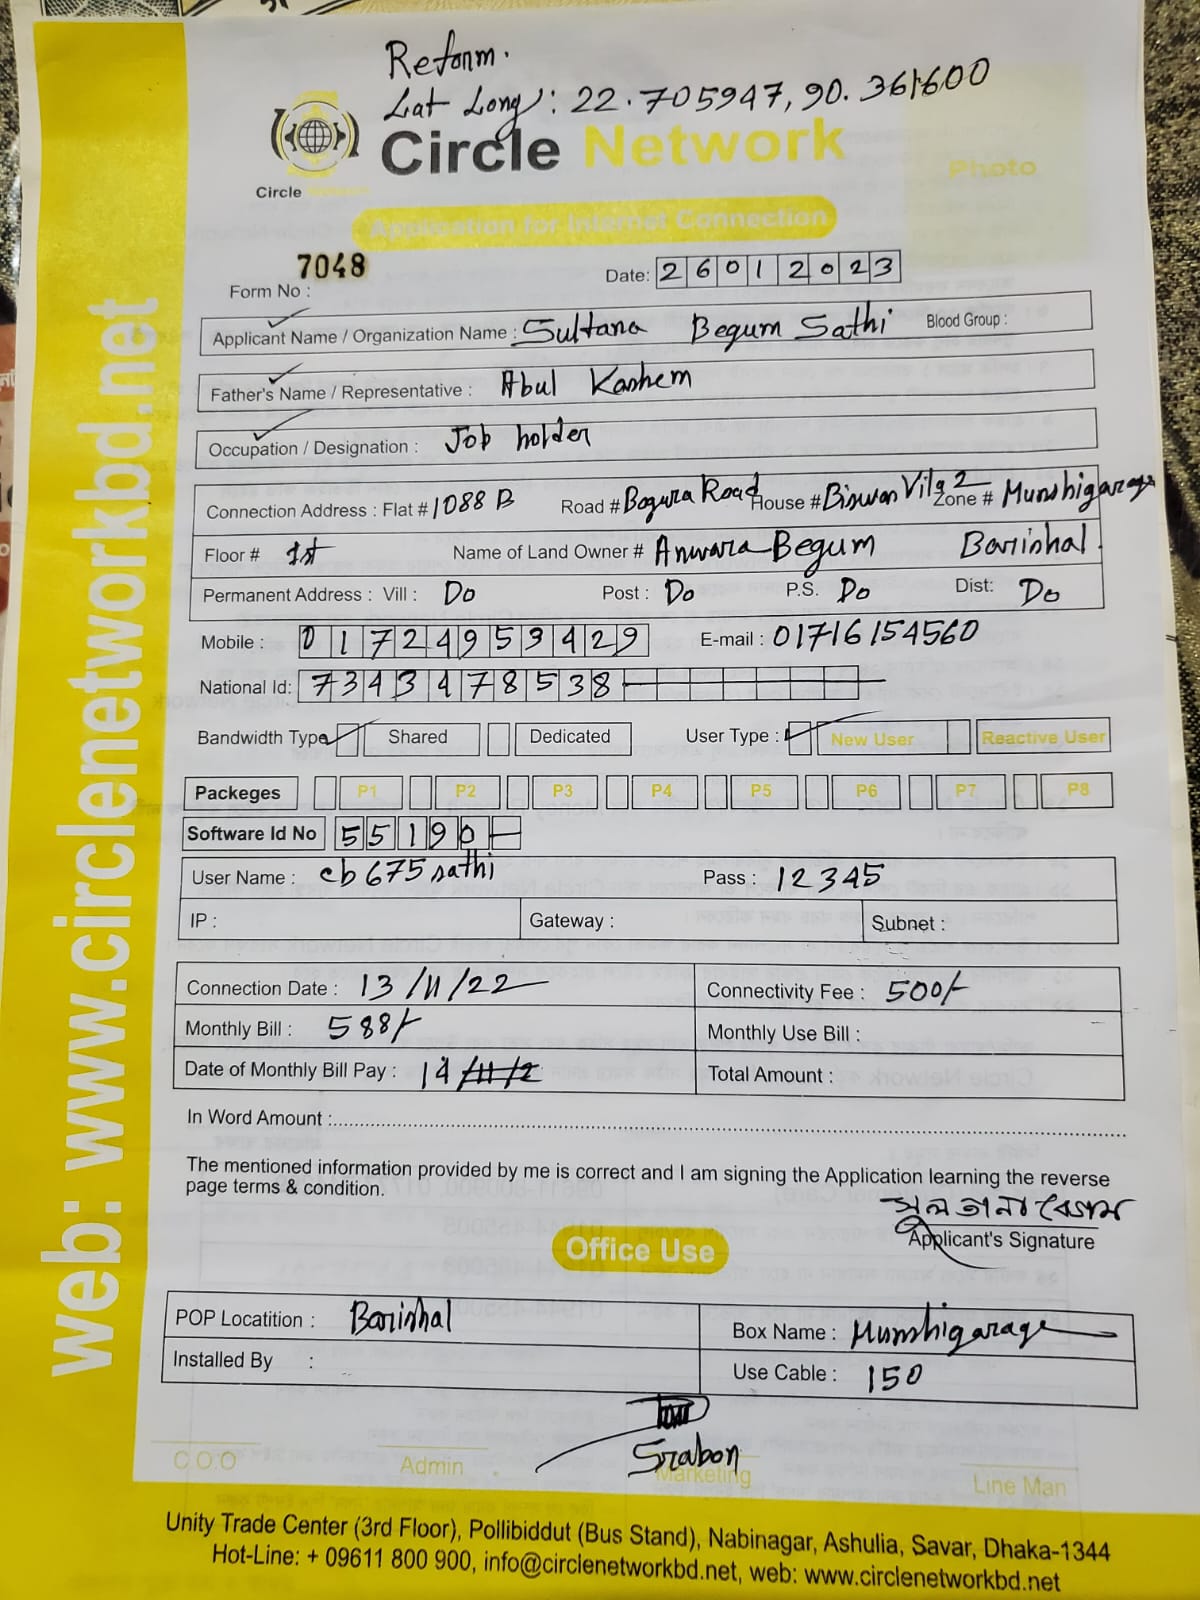 Reform.
Lat Long: 22.705947, 90.361600
Circle Network
Circle Network
Photo
Application for Internet Connection
7048
Form No :
Date: 26012023
Applicant Name / Organization Name : Sultana Begum Sathi Blood Group :
Father's Name / Representative : Abul Kashem
Occupation / Designation : Job holder
Connection Address : Flat # 1088 B Road # Bogura Road House # Biswan Vila 2 Zone # Munshigarage
Floor # 1st Name of Land Owner # Anwara Begum Barishal
Permanent Address : Vill : Do Post : Do P.S. Do Dist: Do
Mobile : 01724953429 E-mail : 01716154560
National Id: 7343478538
Bandwidth Type Shared Dedicated User Type : New User Reactive User
Packeges P1 P2 P3 P4 P5 P6 P7 P8
Software Id No 55190
User Name : cb675sathi Pass : 12345
IP : Gateway : Subnet :
Connection Date : 13/11/22 Connectivity Fee : 500/-
Monthly Bill : 588/- Monthly Use Bill :
Date of Monthly Bill Pay : 14 Total Amount :
In Word Amount :
The mentioned information provided by me is correct and I am signing the Application learning the reverse
page terms & condition.
সুলতানা বেগম
Applicant's Signature
Office Use
POP Locatition : Barishal Box Name : Munshigarage
Installed By : Use Cable : 150
Srabon
C.O.O Admin Marketing Line Man
Unity Trade Center (3rd Floor), Pollibiddut (Bus Stand), Nabinagar, Ashulia, Savar, Dhaka-1344
Hot-Line: + 09611 800 900, info@circlenetworkbd.net, web: www.circlenetworkbd.net
web: www.circlenetworkbd.net